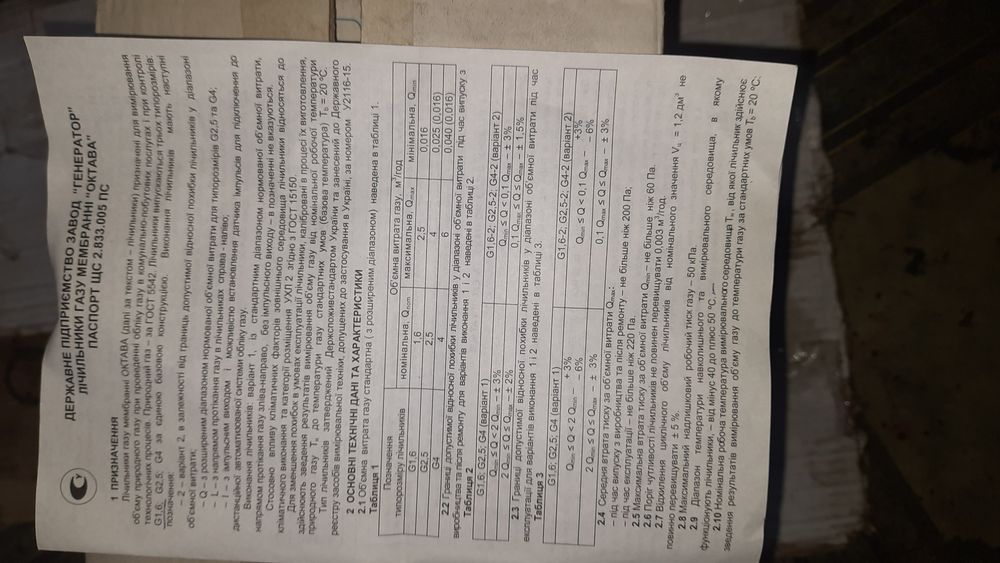 ДЕРЖАВНЕ ПІДПРИЄМСТВО ЗАВОД "ГЕНЕРАТОР"
ЛІЧИЛЬНИКИ ГАЗУ МЕМБРАННІ "ОКТАВА"
ПАСПОРТ ЩС 2.833.005 ПС
1 ПРИЗНАЧЕННЯ
Лічильники газу мембранні ОКТАВА (далі за текстом – лічильники) призначені для вимірювання
об'єму природного газу при проведенні обліку газу в комунально-побутових послугах і при контролі
технологічних процесів. Природний газ – за ГОСТ 5542. Лічильники випускаються трьох типорозмірів:
G1,6, G2,5, G4 за єдиною базовою конструкцією. Виконання лічильників мають наступні
позначення:
– 2 – варіант 2, в залежності від границь допустимої відносної похибки лічильників у діапазоні
об'ємної витрати;
– Q – з розширеним діапазоном нормованої об'ємної витрати для типорозмірів G2,5 та G4;
– L – з напрямом протікання газу в лічильниках справа - наліво;
– I – з імпульсним виходом і можливістю встановлення датчика імпульсів для підключення до
дистанційної автоматизованої системи обліку газу.
Виконання лічильників: варіант 1, із стандартним діапазоном нормованої об'ємної витрати,
напрямом протікання газу зліва-направо, без імпульсного виходу – в позначенні не вказуються.
Стосовно впливу кліматичних факторів зовнішнього середовища лічильники відносяться до
кліматичного виконання та категорії розміщення УХЛ 2 згідно з ГОСТ 15150.
Для зменшення похибок в умовах експлуатації лічильники, калібровані в процесі їх виготовлення,
здійснюють зведення результатів вимірювання об'єму газу від номінальної робочої температури
природного газу Тн до температури газу стандартних умов (базова температура) Tb = 20 °С.
Тип лічильників затверджений Держспоживстандартом України та занесений до Державного
реєстру засобів вимірювальної техніки, допущених до застосування в Україні, за номером У2116-15.
2 ОСНОВНІ ТЕХНІЧНІ ДАНІ ТА ХАРАКТЕРИСТИКИ
2.1 Об'ємна витрата газу стандартна ( з розширеним діапазоном) наведена в таблиці 1.
Таблиця 1
Позначення типорозміру лічильників Об'ємна витрата газу, м³/год
номінальна, Qnom максимальна, Qmax мінімальна, Qmin
G1,6 1,6 2,5 0,016
G2,5 2,5 4 0,025 (0,016)
G4 4 6 0,040 (0,016)
2.2 Границі допустимої відносної похибки лічильників у діапазоні об'ємної витрати під час випуску з
виробництва та після ремонту для варіантів виконання 1 і 2 наведені в таблиці 2.
Таблиця 2
G1,6; G2,5; G4 (варіант 1) G1,6-2; G2,5-2; G4-2 (варіант 2)
Qmin ≤ Q < 2 Qmin – ± 3% Qmin ≤ Q < 0,1 Qmax – ± 3%
2 Qmin ≤ Q ≤ Qmax – ± 2% 0,1 Qmax ≤ Q ≤ Qmax – ± 1,5%
2.3 Границі допустимої відносної похибки лічильників у діапазоні об'ємної витрати під час
експлуатації для варіантів виконання 1 і 2 наведені в таблиці 3.
Таблиця 3
G1,6; G2,5; G4 (варіант 1) G1,6-2; G2,5-2; G4-2 (варіант 2)
Qmin ≤ Q < 2 Qmin – + 3% – 6% Qmin ≤ Q < 0,1 Qmax – +3% – 6%
2 Qmin ≤ Q ≤ Qmax – ± 3% 0,1 Qmax ≤ Q ≤ Qmax – ± 3%
2.4 Середня втрата тиску за об'ємної витрати Qmax:
– під час випуску з виробництва та після ремонту – не більше ніж 200 Па,
– під час експлуатації – не більше ніж 220 Па.
2.5 Максимальна втрата тиску за об'ємної витрати Qmin – не більше ніж 60 Па.
2.6 Поріг чутливості лічильників не повинен перевищувати 0,003 м³/год.
2.7 Відхилення циклічного об'єму лічильників від номінального значення Vц = 1,2 дм³ не
повинно перевищувати ± 5 %.
2.8 Максимальний надлишковий робочий тиск газу – 50 кПа.
2.9 Діапазон температури навколишнього та вимірювального середовища, в якому
функціонують лічильники, – від мінус 40 до плюс 50 °С.
2.10 Номінальна робоча температура вимірювального середовища Тн, від якої лічильник здійснює
зведення результатів вимірювання об'єму газу до температури газу за стандартних умов Tb = 20 °С;